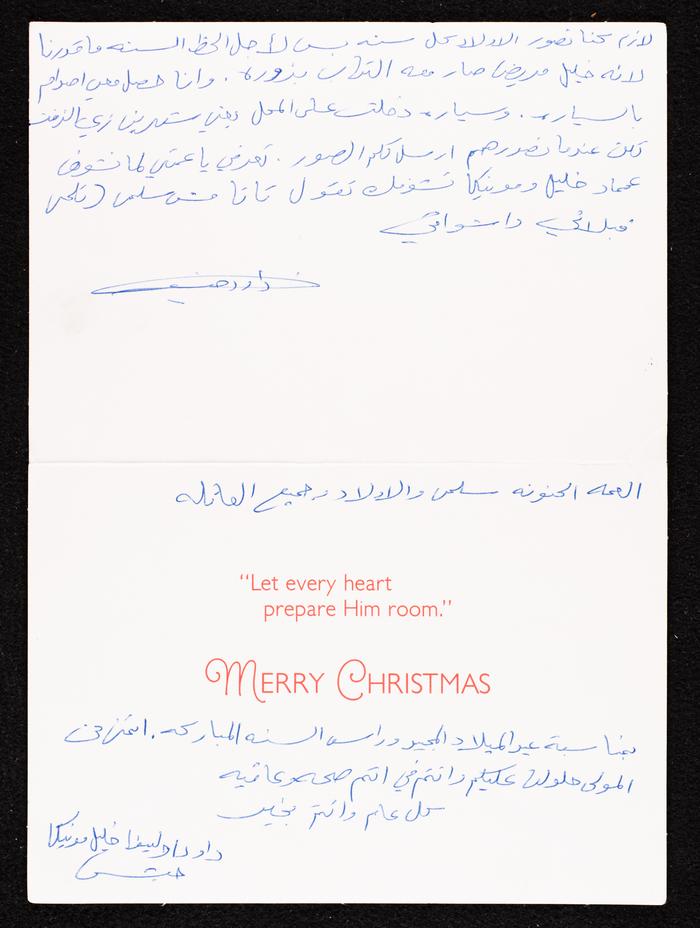 لازم كنا نصور الاولاد كل سنه بس لأجل الحظ السنه ما قدرنا
لانه خليل مريض صار معه التهاب بزوره. وانا حصل معي اصدام
بالسياره. وسياره دخلت على المحل يعني شهرين زي الزفت
لكن عندما نصورهم ارسل لكم الصور. تعرفي يا عمتي لما نشوف
عماد خليل ومونيكا تشوفك تقول تاتا مش سلمى
قبلاتي واشواقي
داود حنيش
العمه الحنونه سلمى والاولاد وجميع العائله
“Let every heart
prepare Him room.”
MERRY CHRISTMAS
بمناسبة عيد الميلاد المجيد وراس السنه المباركه. اتمنى من
المولى حلولها عليكم وانتم في اتم صحه وعافيه
كل عام وانتم بخير
داود خليل مونيكا
حنيش